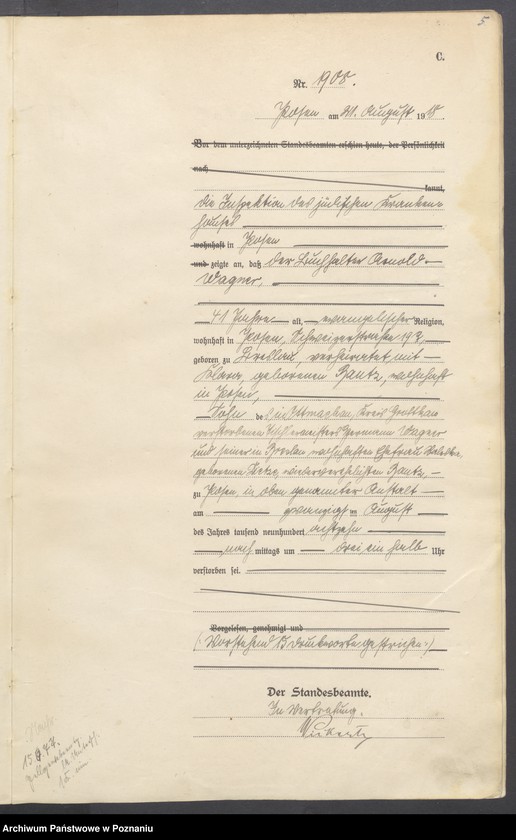 5
C.
Nr. 1908.
Posen am 21. August 1918.
Vor dem unterzeichneten Standesbeamten erschien heute, der Persönlichkeit
nach
kannt,
die Inspektion des jüdischen Kranken=
hauses
wohnhaft in Posen
und zeigte an, daß der Buchhalter Arnold
Wagner,
41 Jahre alt, evangelischer Religion,
wohnhaft in Posen, Schweizerstraße
geboren zu Breslau, verheiratet mit
Klara, geborenen wohnhaft
in Posen,
Sohn des in Ottmachau, Kreis Grottkau
verstorbenen Hermann Wagner
und seiner in Breslau wohnhaften Ehefrau
geborenen wiederverehelichten
zu Posen, in oben genannter Anstalt
am zwanzigsten August
des Jahres tausend neunhundert achtzehn
nach mittags um drei ein halb Uhr
verstorben sei.
Vorgelesen, genehmigt und
(Vorstehend 13 Druckworte gestrichen.)
Der Standesbeamte.
In Vertretung.
Archiwum Państwowe w Poznaniu